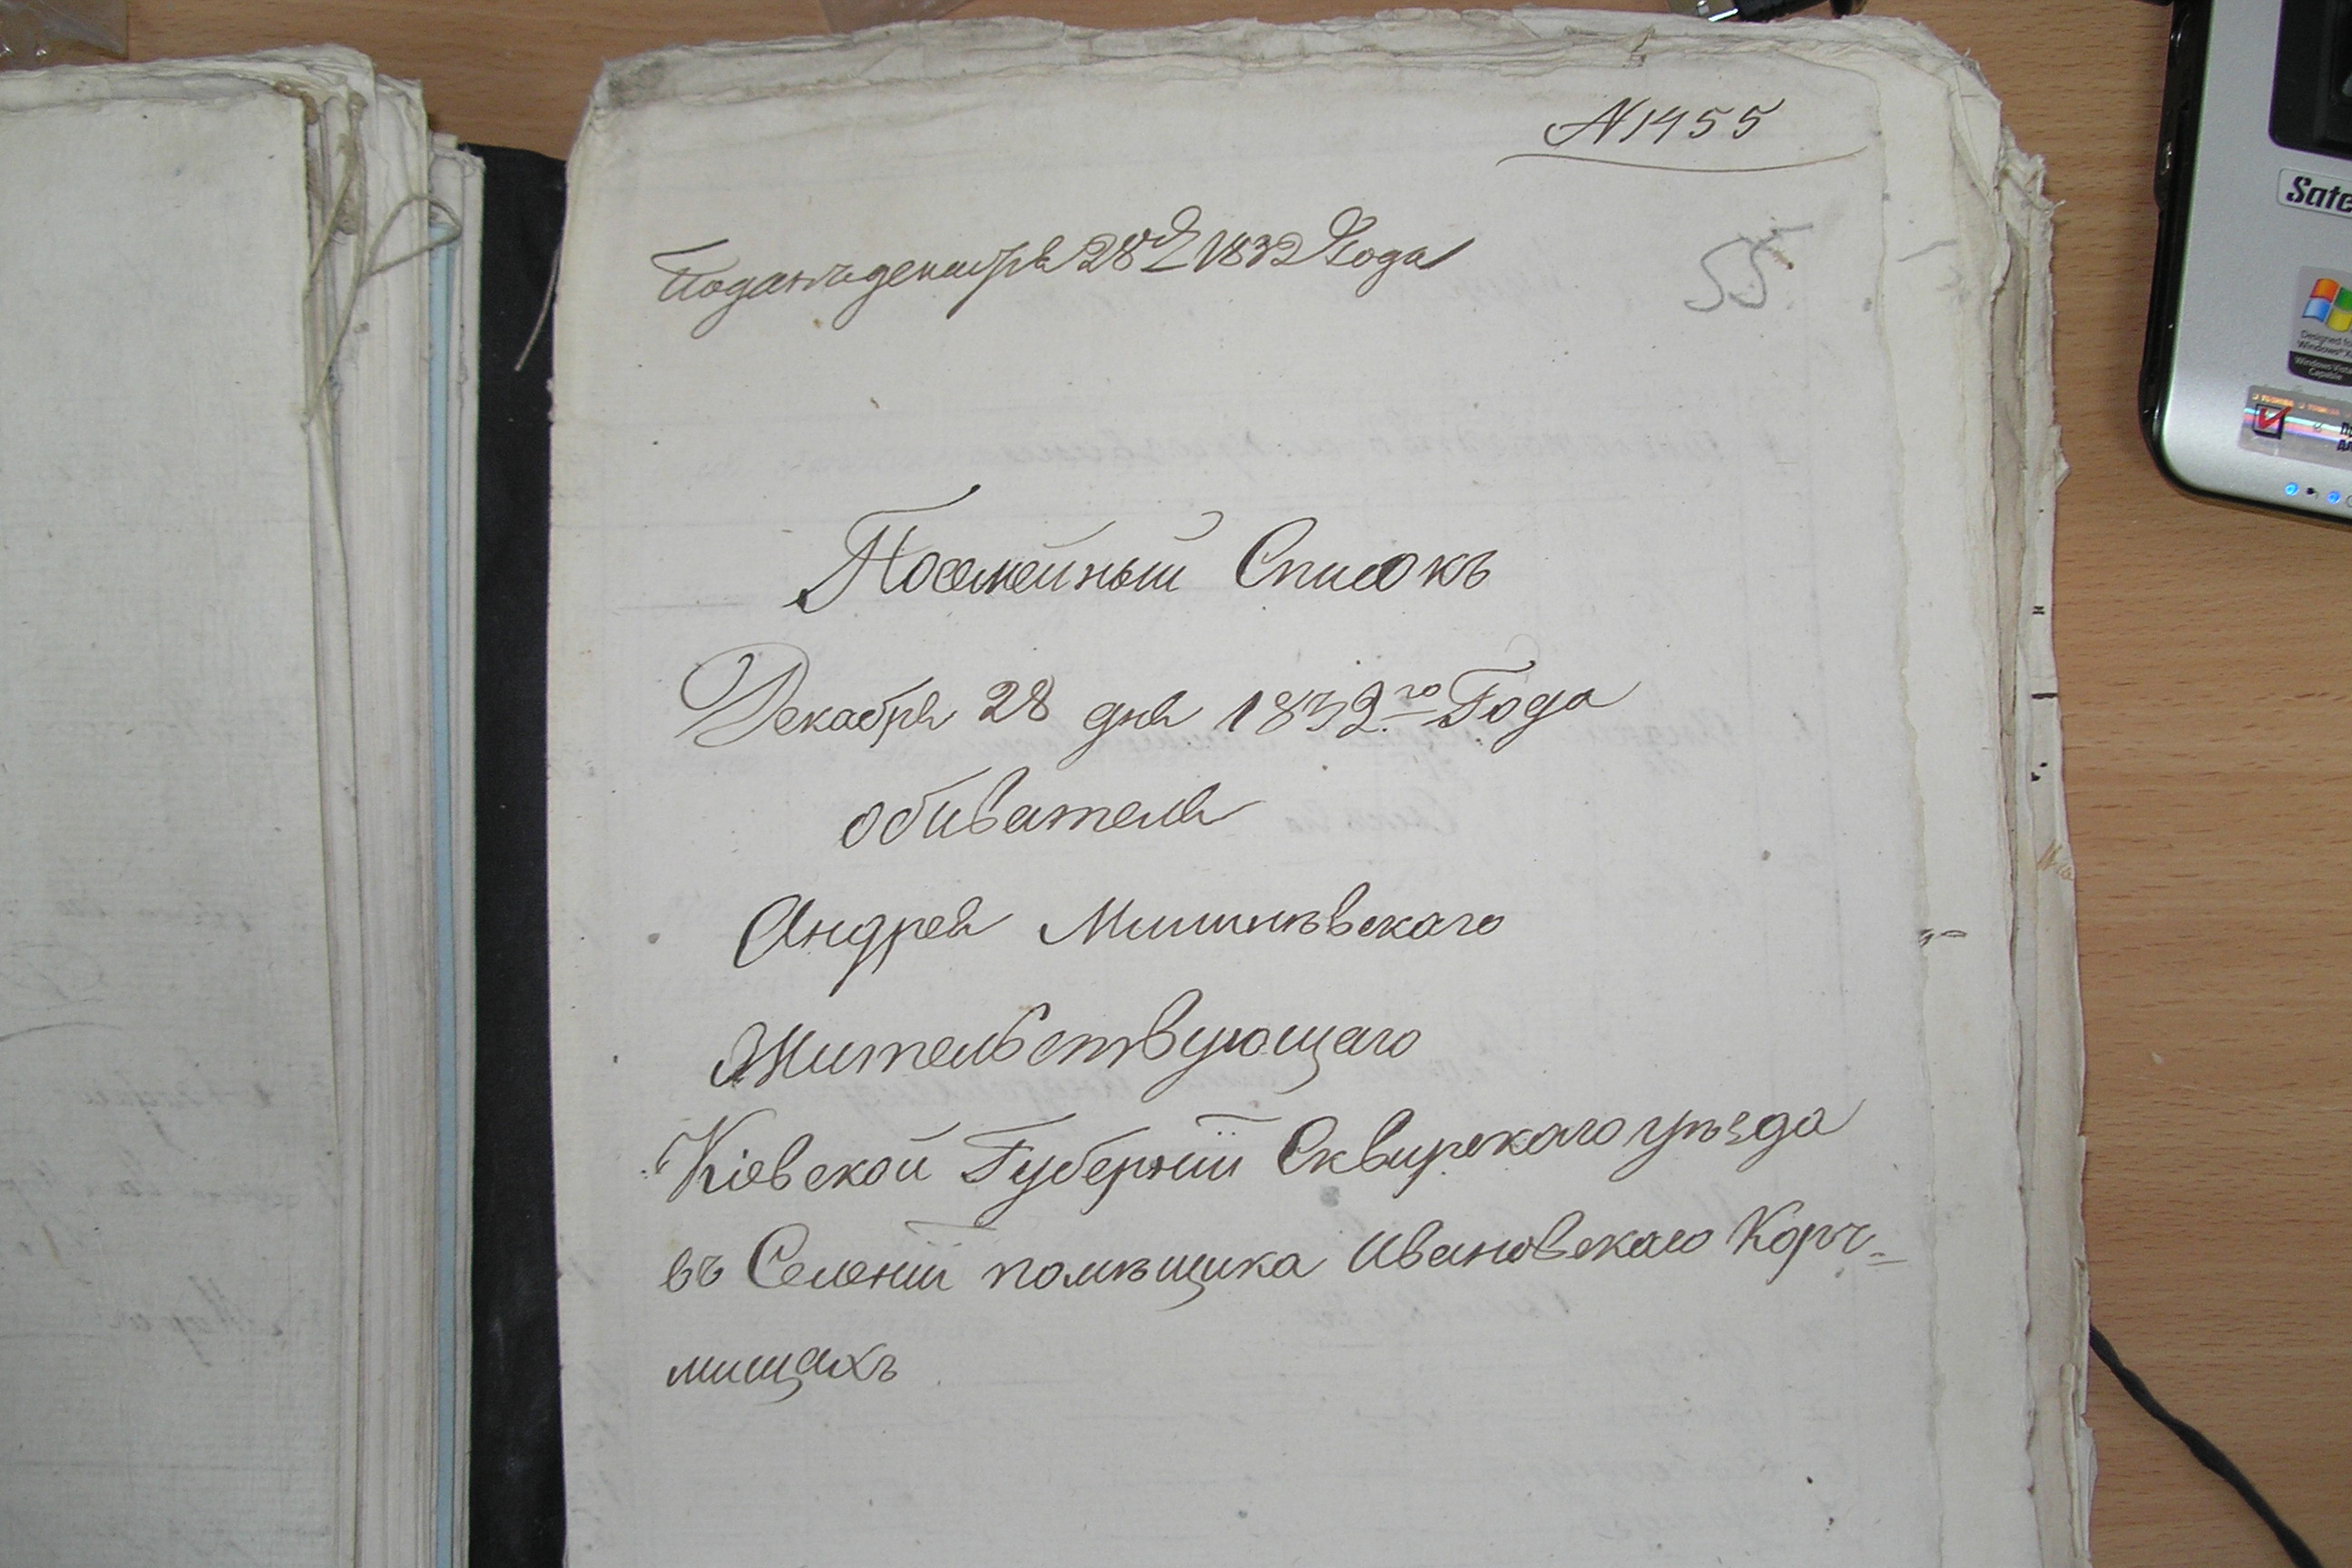 N 1455
Поданъ декабря 28 д 1832 Года
55
Посемейный Списокъ
Декабря 28 дня 1832го Года
обивателя
Андрея Мишилѣвскаго
Жительствующаго
Кіевской Губерніи Сквирскаго уѣзда
въ Селеніи помѣщика Ивановскаго Корч=
мищахъ
Sate
Designed fo
Windows® X
Windows Vista
Capable